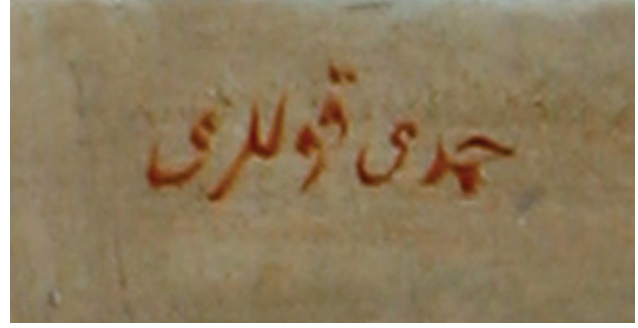 حمدی قوللری